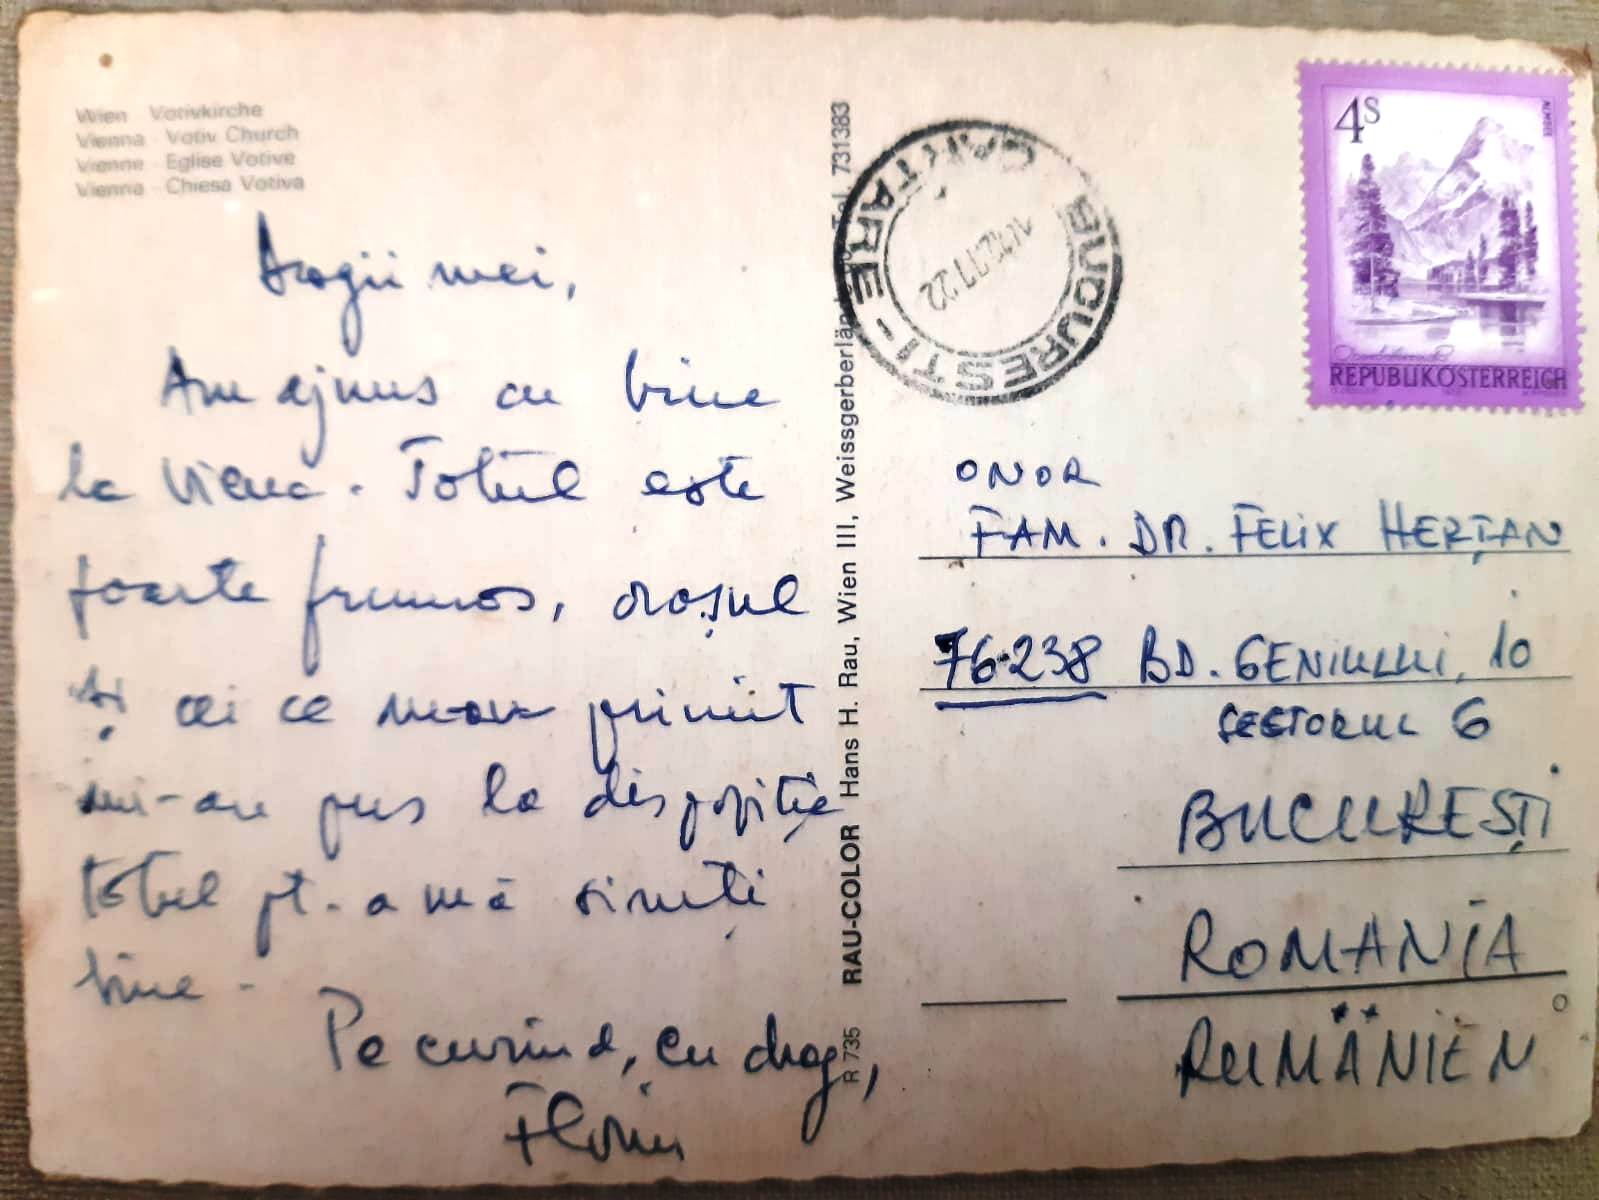 Wien Votivkirche
Vienna Votiv Church
Vienne Eglise Votive
Vienna Chiesa Votiva
Dragii mei,
Am ajuns cu bine
la Viena. Totul este
foarte frumos, orașul
și cei ce m-au primit
mi-au pus la dispoziție
totul pt. a mă simți
bine.
Pe curînd, cu drag,
Florin
R 735 RAU-COLOR Hans H. Rau, Wien III, Weissgerberlän Tel. 731383
BUCUREȘTI - CARTARE
77.22
4S
ALMSEE
REPUBLIK ÖSTERREICH
ONOR
FAM. DR. FELIX HERȚAN
76-238 BD. GENIULUI, 10
SECTORUL 6
BUCUREȘTI
ROMANIA
RUMÄNIEN